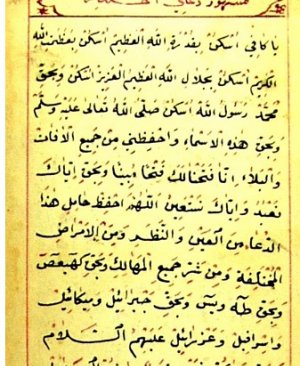 مشهور دعای
يا كافى اسكن بقدرة الله العظيم اسكن بعظمة الله
الكريم اسكن بجلال الله العظيم العزيز اسكن وبحق
محمد رسول الله اسكن صلى الله تعالى عليه وسلم
وبحق هذه الاسماء واحفظني من جميع الآفات
والبلاء انا فتحنا لك فتحا مبينا وبحق اياك
نعبد واياك نستعين اللهم احفظ حامل هذا
الدعا من العين والنظر ومن الامراض
المختلفة ومن شر جميع المهالك وبحق كهيعص
وبحق طه ويس وبحق جبرائيل وميكائيل
واسرافيل وعزرائيل عليهم السلام